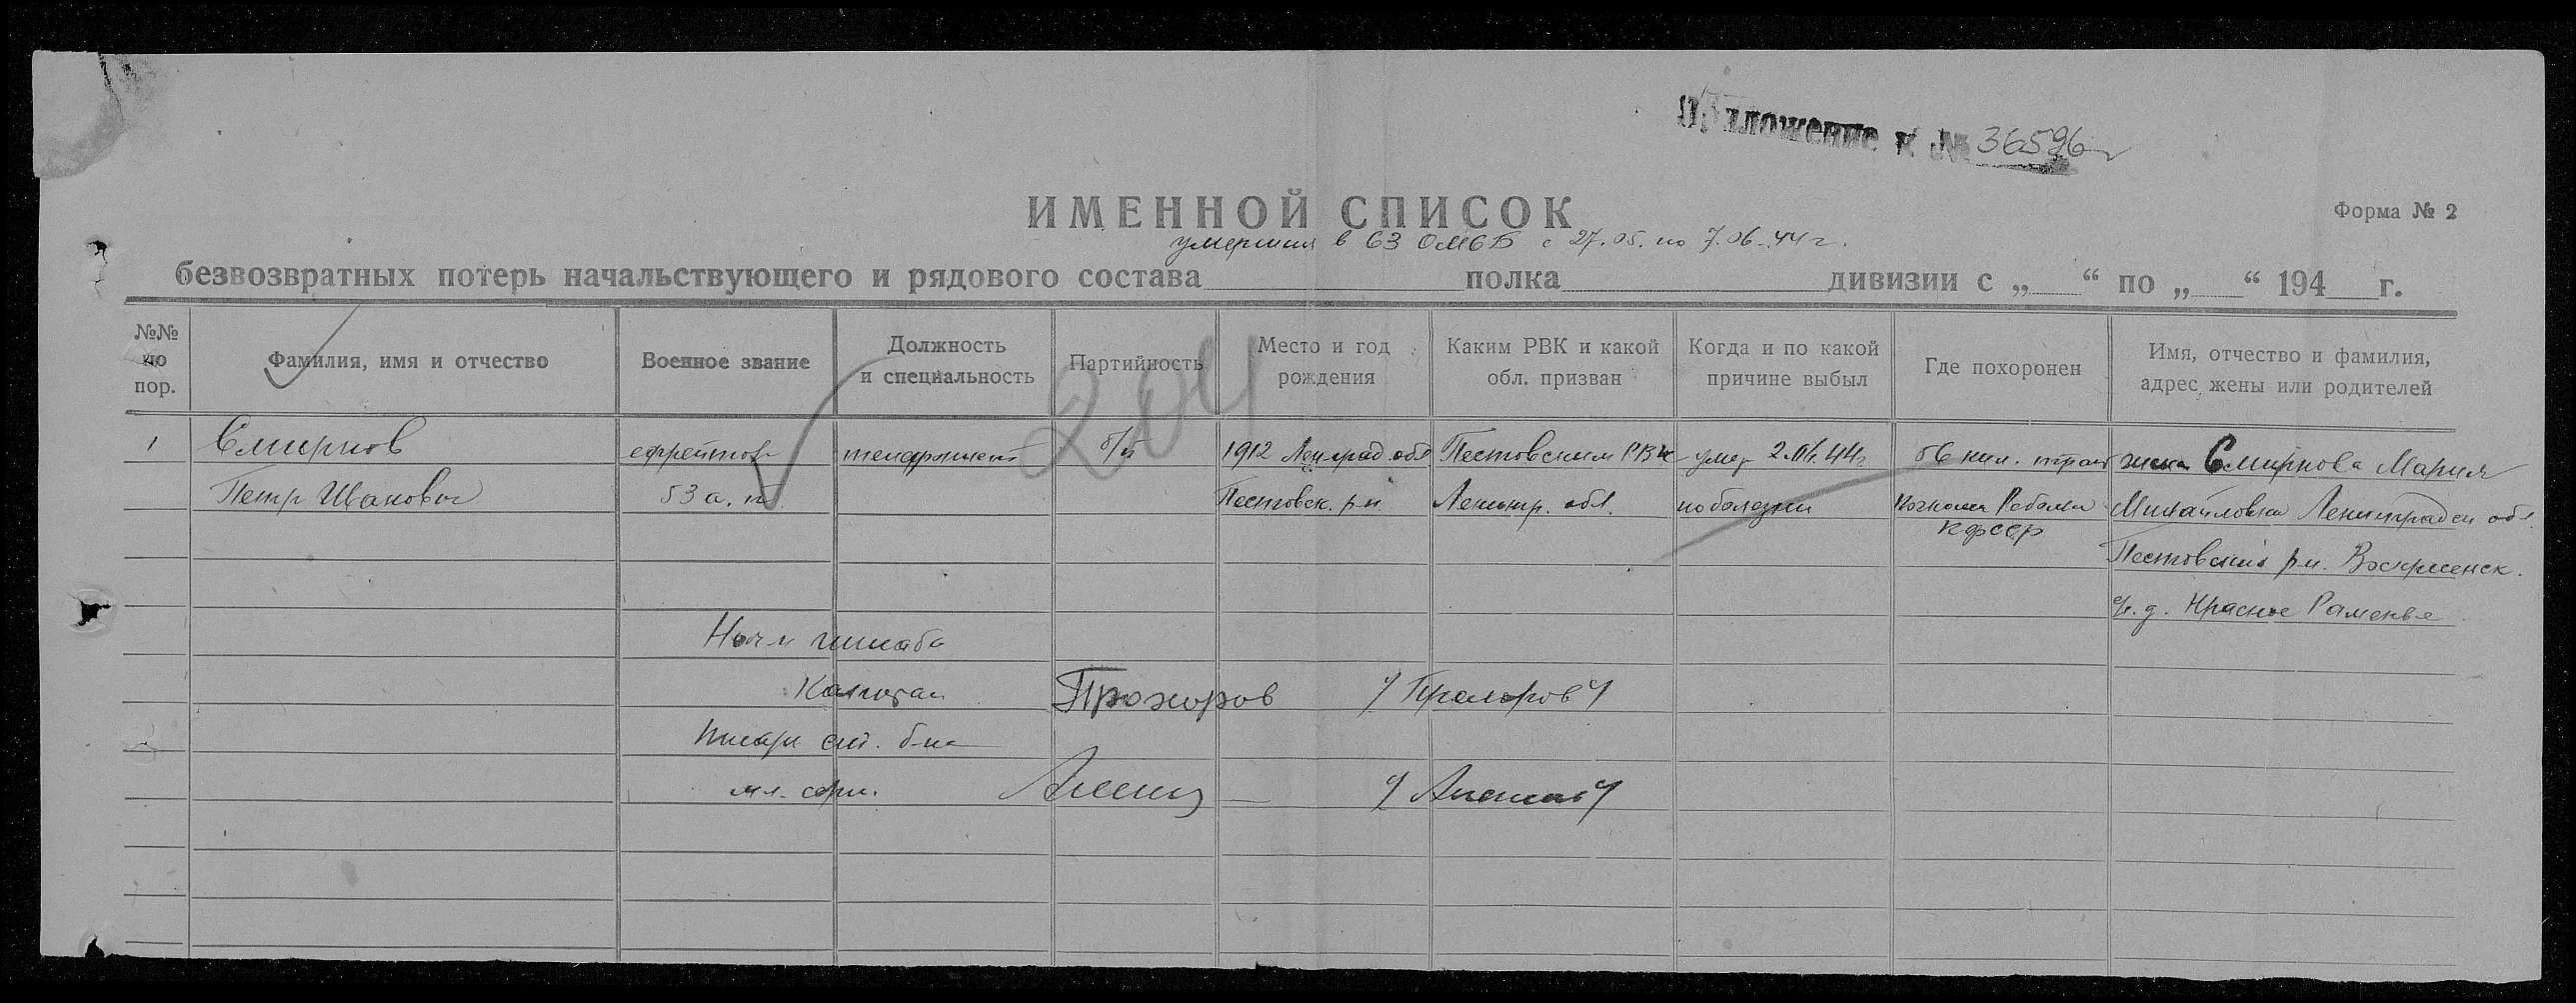 Приложение к № 36596
ИМЕННОЙ СПИСОК
Форма № 2
умерших в 63 ОМСБ с 27.05. по 7.06.44 г.
безвозвратных потерь начальствующего и рядового состава полка дивизии с „ “ по „ “ 194 г.
№№ по пор.
Фамилия, имя и отчество
Военное звание
Должность и специальность
Партийность
Место и год рождения
Каким РВК и какой обл. призван
Когда и по какой причине выбыл
Где похоронен
Имя, отчество и фамилия, адрес жены или родителей
204
1 Смирнов ефрейтор телефонист б/п 1912 Ленинград. обл Пестовским РВК умер 2.06.44г 56 кил. жена Смирнова Мария
Петр Иванович 53 а. п. Пестовск. р-н. Ленингр. обл. по болезни Кочкома Реболы Михайловна Ленинградск обл.
КФССР
Пестовский р-н. Воскресенск.
с/с. д. Красное Раменье
Нач-к штаба
Капитан Прохоров "Прохоров"
Писарь б-на
мл. серж.